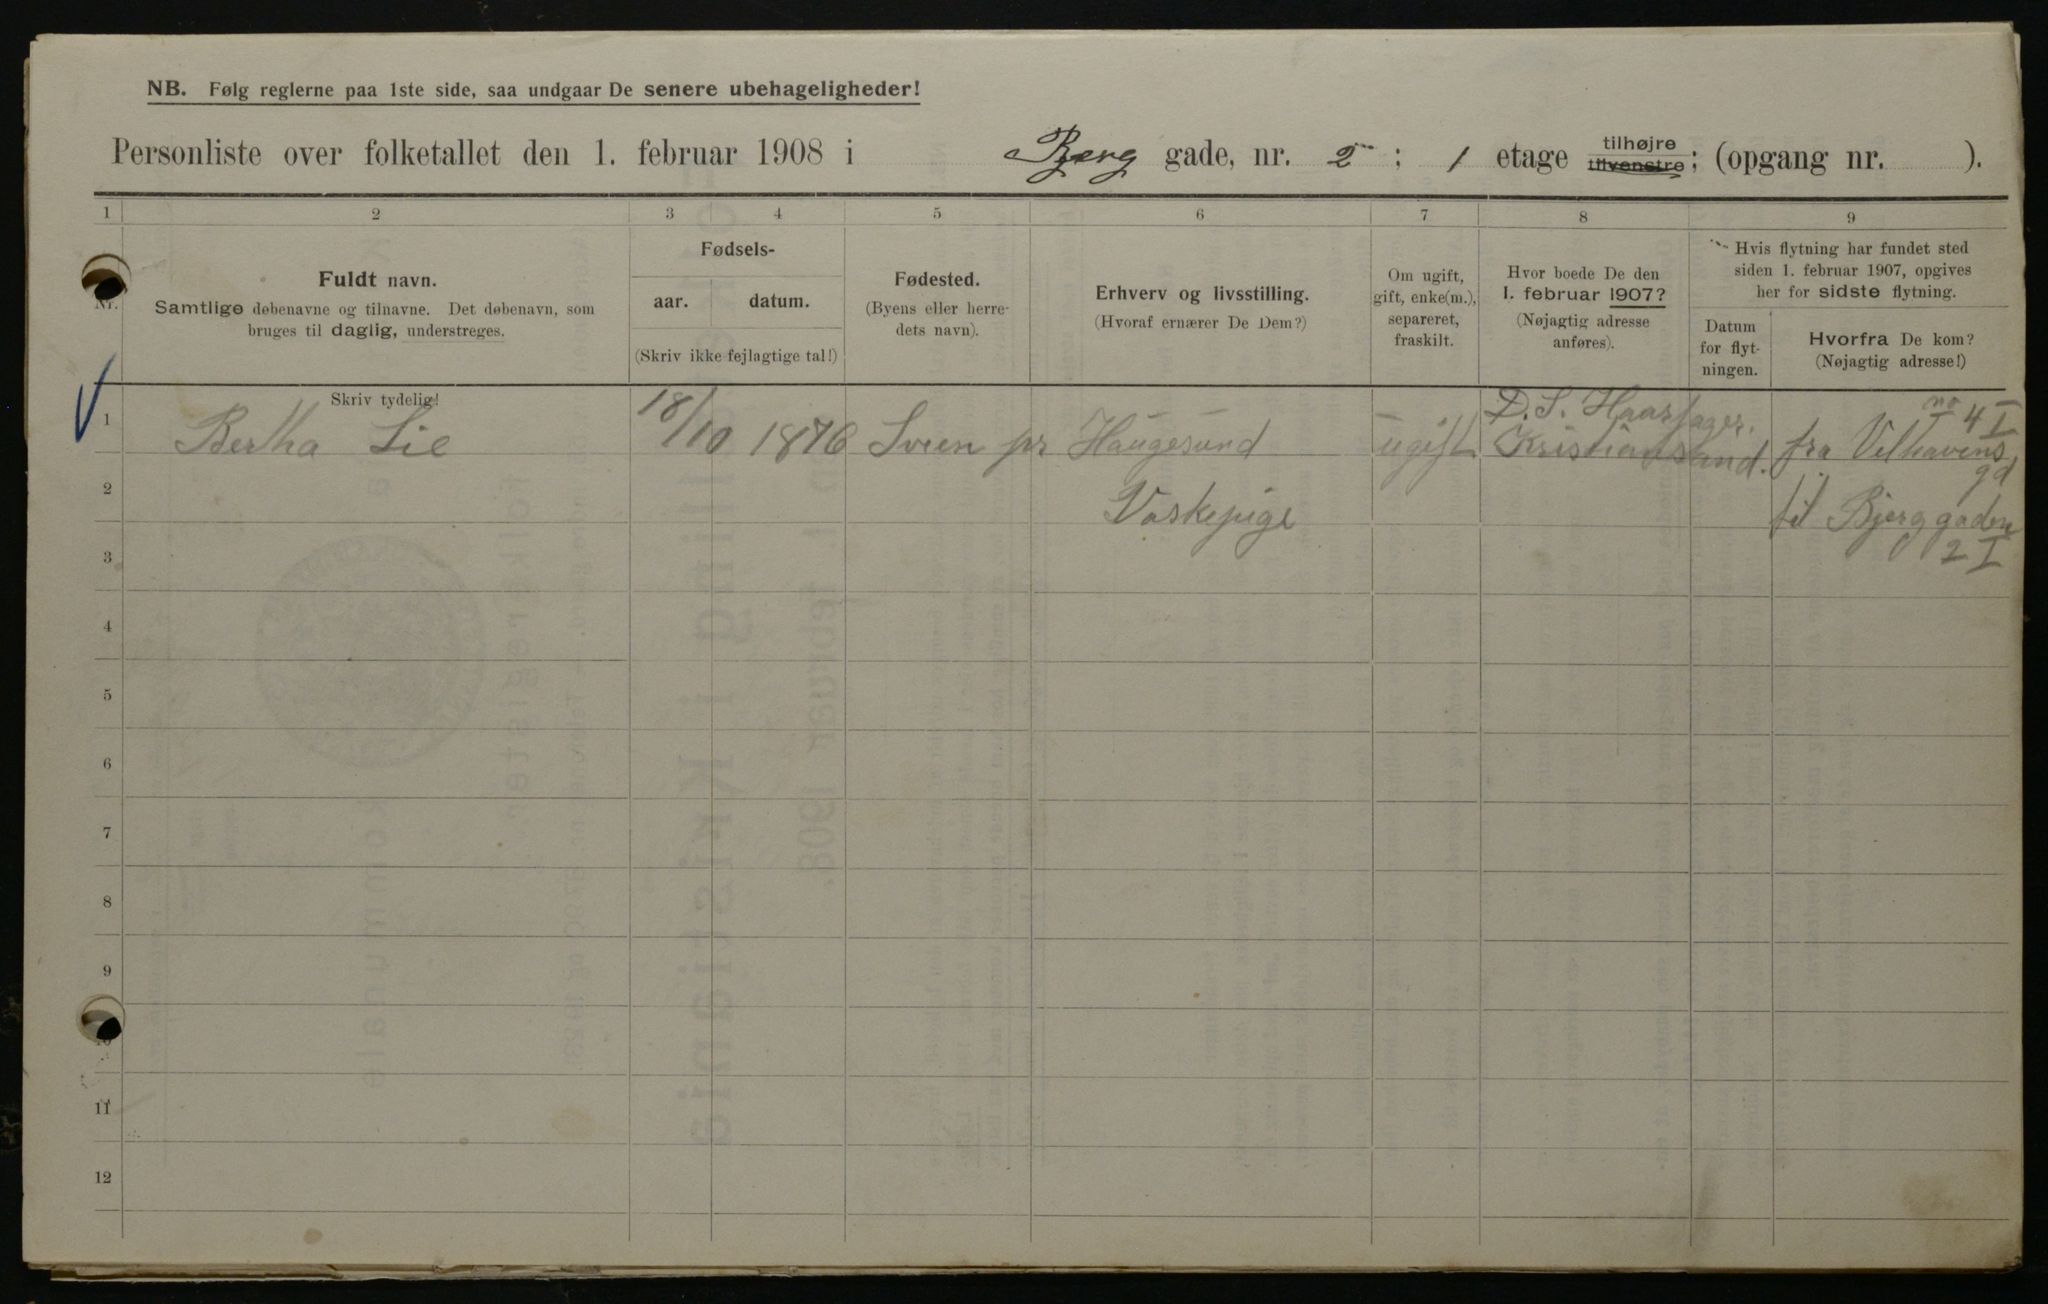 NB. Følg reglerne paa 1ste side, saa undgaar De senere ubehageligheder!
Personliste over folketallet den 1. februar 1908 i Bjerg gade, nr. 2 ; 1 etage tilhøjre tilvenstre; (opgang nr. ).
1 2 3 4 5 6 7 8 9
Nr.
Fuldt navn.
Samtlige døbenavne og tilnavne. Det døbenavn, som
bruges til daglig, understreges.
Fødsels-
aar. datum.
(Skriv ikke fejlagtige tal!)
Fødested.
(Byens eller herre-
dets navn).
Erhverv og livsstilling.
(Hvoraf ernærer De Dem?)
Om ugift,
gift, enke(m.),
separeret,
fraskilt.
Hvor boede De den
1. februar 1907?
(Nøjagtig adresse
anføres).
Hvis flytning har fundet sted
siden 1. februar 1907, opgives
her for sidste flytning.
Datum
for flyt-
ningen.
Hvorfra De kom?
(Nøjagtig adresse!)
Skriv tydelig!
D. S. no 4 I
1 Bertha Lie 18/10 1876 Sveen pr Haugesund ugift Kristiansand. fra Velhavens
gd
2 Vaskepige til Bjerggaden
3 2 I
4
5
6
7
8
9
10
11
12